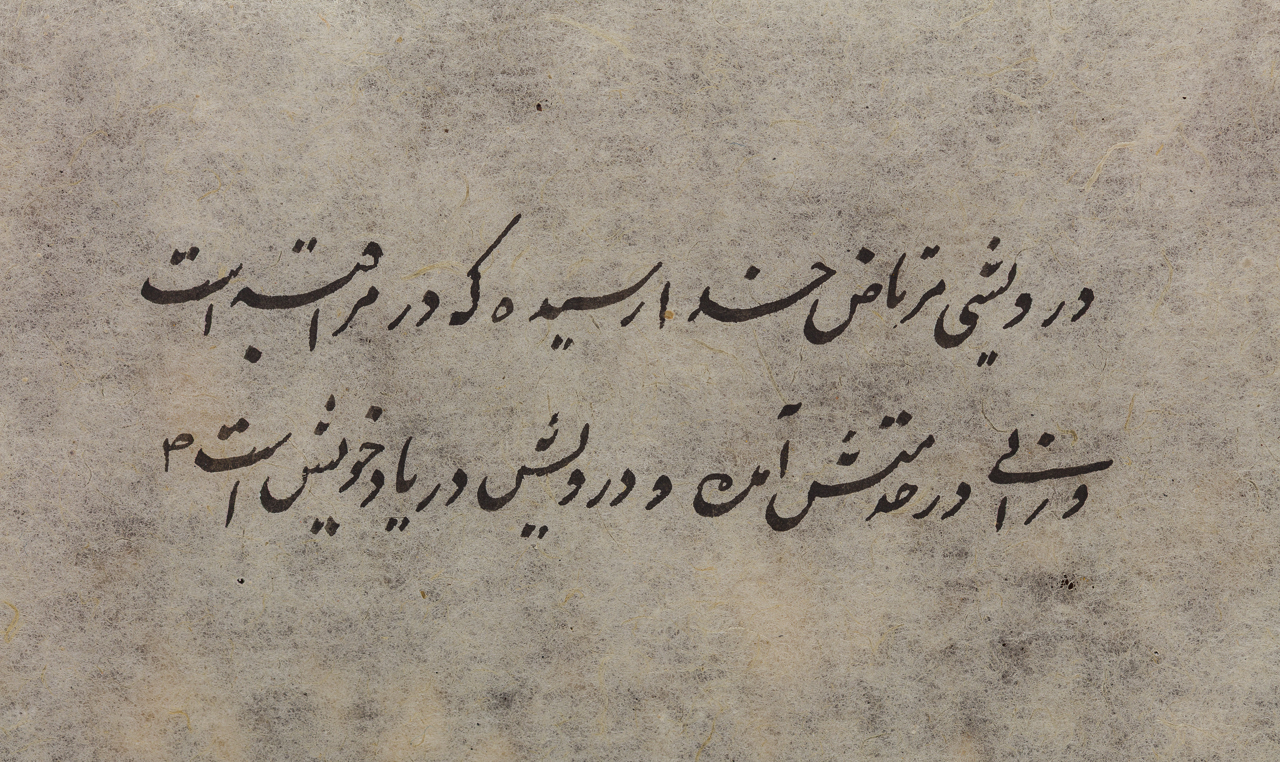 درویشی مرتاض خدا رسیده که در مراقبه است
و زانی در خدمتش آمده و درویش در یاد خویش است ۳